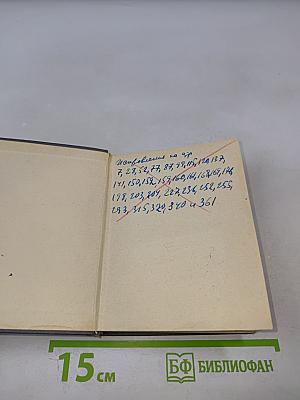 Исправления на стр
7, 28, 52, 77, 87, 99, 115, 129, 137,
141, 150, 152, 157, 160, 161, 164, 167, 176,
198, 203, 204, 227, 234, 252, 255,
293, 315, 329, 340 и 361
15 см
БФ БИБЛИОФАН